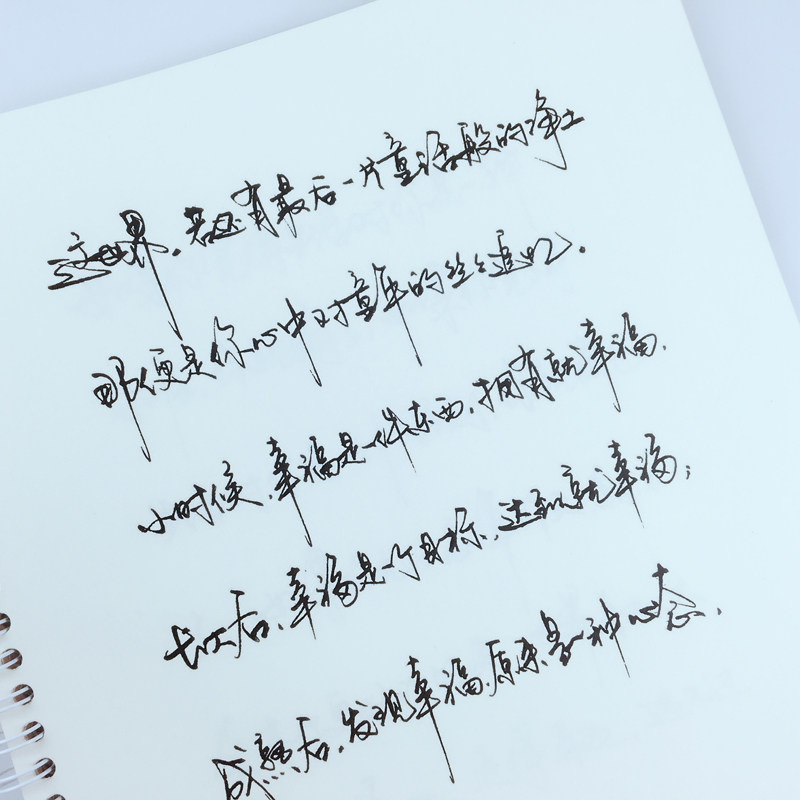 这世界，若还有最后一片童话般的净土
那便是你心中对童年的丝丝追忆。
小时候，幸福是一件东西，拥有就幸福，
长大后，幸福是个目标，达到就幸福；
成熟后，发现幸福原来是一种心态，